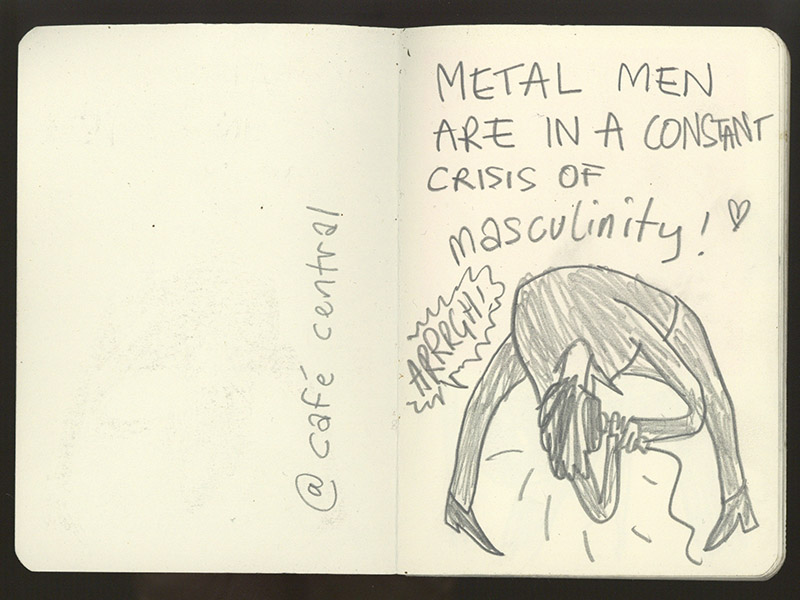 @ café central
METAL MEN
ARE IN A CONSTANT
CRISIS OF
masculinity! ♡
ARRRGH!